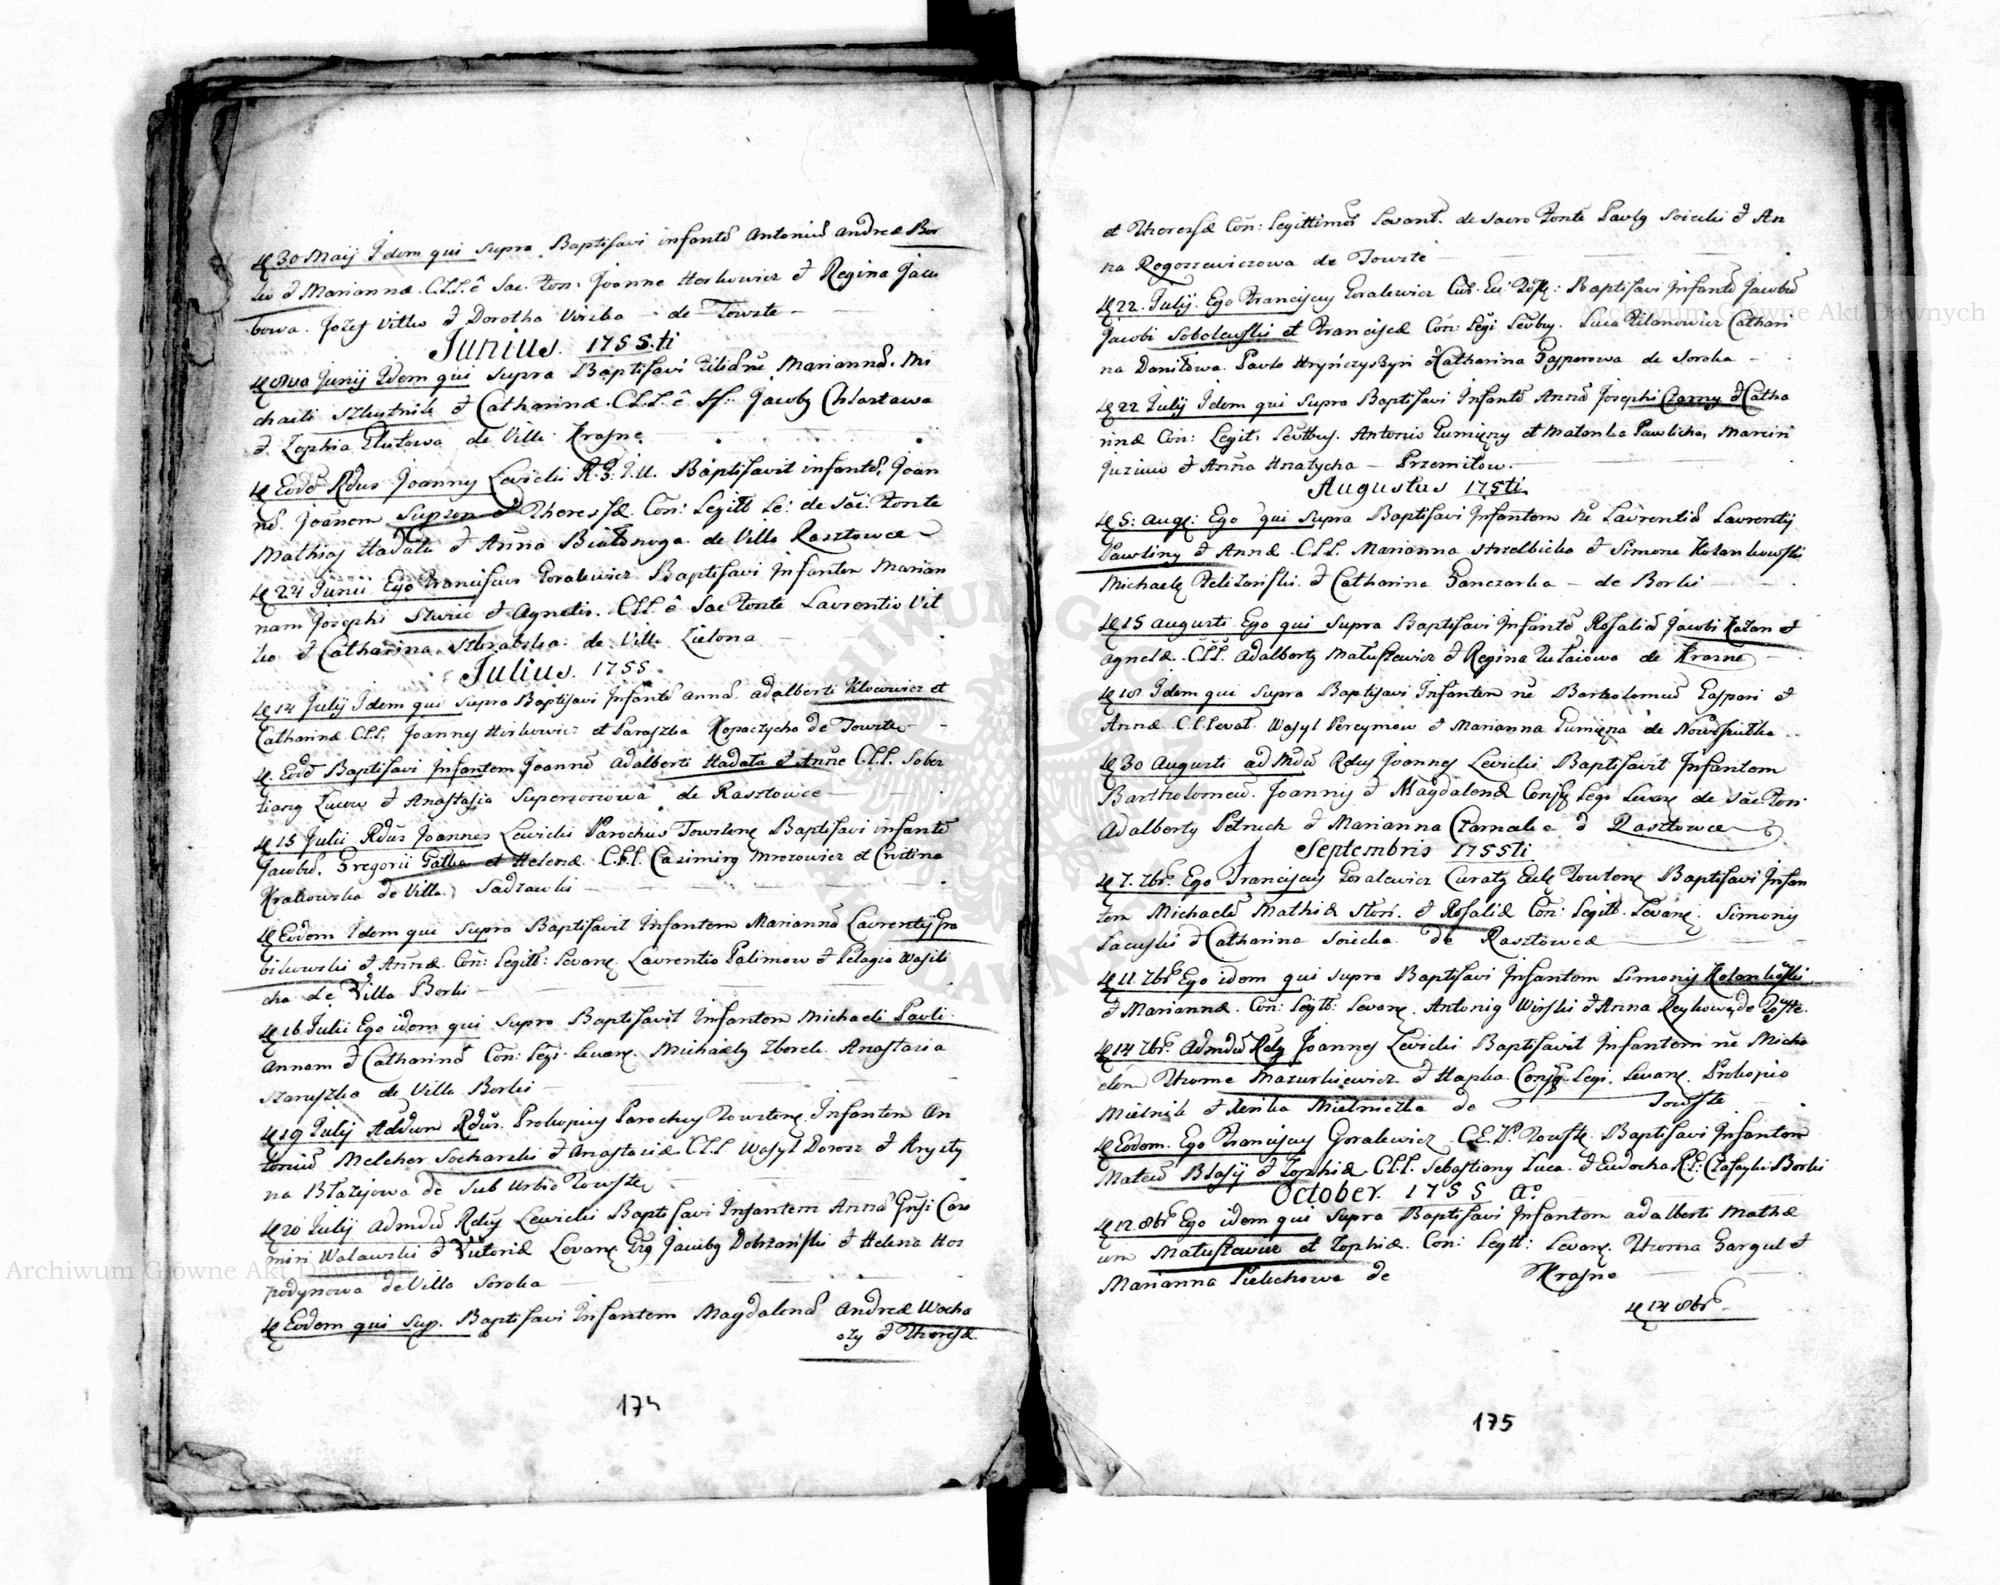 30 Maij Idem qui supra Baptisavi infantē Antoniū Andreæ Bor
ko et Mariannæ C.L.L. ê Sac. Fon: Joanne Horkowicz et Regina Jacu
bowa. Jozef Vitko et Dorotha de Towste
Junius. 1755.ti
8va Junij Idem qui supra Baptisavi Mariannā. Mi
chaeli Szkutnik et Catharinæ C.L.L. ê Sf: Jacoby Chlastawa
et Zophia Glutowa de Villa Krasne
Eodē Rdus Joannes Levicki Baptisavit infantē Joan
nē. Joannem Supron et Theressæ. Con: Legitt Le: de Sac: Fonte
Mathias Hadała et Anna Białonoga de Villa Rasztowce
24 Junii Ego Franciscus Goralewicz Baptisavi Infantem Marian
nam Josephi et Agnetis. C.L.L. ê Sac Fonte Laurentio Vit
ko et Catharina de Villa Zielona
Julius. 1755.
14 Julij Idem qui supra Baptisavi Infantē Annā Adalberti Klocowicz et
Catharinæ C.L.L. Joannes Hirkowicz et Paraszka Kopaczycha de Towste
Eodē Baptisavi Infantem Joannē Adalberti Hadała et Annæ C.L.L. Sobes
tiany Lucow et Anastasia de Rasztowce
15 Julii Rdus Joannes Levicki Parochus Towstens Baptisavi infantē
Jacobū. Gregorii Gałka et Helenæ C.L.L. Casimirg Mrozowicz et Cristina
Krakowska de Villa Sadzawki
Eodem Idem qui supra Baptisavit Infantem Mariannā Laurentij Gra
bikowski et Annæ. Con: Legitt: Levans. Laurentio Palimow et Pelagia Wasili
cha de Villa Borki
16 Julii Ego idem qui supra Baptisavit Infantem Michaeli Pavli
Annam et Catharinā Con: Legi Levans. Michaely Zborek. Anastazia
staryszka de Villa Borki
19 Julij Admdum Rdus. Prokopius Parochus Towstens. Infantem An
toniū Melcher Socharski et Anastaziæ C.L.L. Wasyl Dorosz et Krysty
na Błażyjowa de Sub Urbio Towste
20 Julij Admdū Rdus Lewicki Baptisavi Infantem Annā Casi
miri Walawski et Victoriæ Levans Jacoby Dobrzański et Helena Hos
podynowa de Villa Soroka
Eodem qui Sup. Baptisavi Infantem Magdalenā Andreæ Wocha
czy et Theresæ
174
et Theressæ Con: Legittimor Levant. de sacro Fonte Pavly Soicki et An
na Rogoszewiczowa de Towste
22. Julij. Ego Franciscus Goralewicz Cur. Ec: Tofs: Baptisavi Infantē Jacobū
Jacobi Sobolewski et Franciscæ Con: Legi Levtby. Luca Pilanowicz Cathari
na Daniłowa. Pavlo Hryńczyszyn et Catharina Gasperowa de Soroka
22 Julij Idem qui Supra Baptisavi Infantē Annā Josephi Czarny et Catha
rinæ Con: Legit: Levtbus. Antonio Gumięny et Matanka Pawlicha, Marcin
Juziuw et Anna Hnatycha – Przemiłow.
Augustus 175ti
5: Aug: Ego qui supra Baptisavi Infantem nē Laurentiū Laurentij
Pawliny et Annæ C.L.L. Marianna Strzelbicka et Simone Kolankowski
Michaele et Catharina Ganczarka – de Borki
15 Augusti Ego qui Supra Baptisavi Infantē Rosaliā Jacobi Kozan et
Agnetæ C.L.L. Adalberty Matusiewicz et Regina de Krasne
18 Idem qui supra Baptisavi Infantem nē Bartholomeū Gaspari et
Annæ C.L.Levat Wasyl Percymow et Marianna Gumięna de Nowosiułka
30 Augusti Admdū Rdus Joannes Levicki Baptisavit Infantem
Bartholomeū. Joannis et Magdalenæ Legi Levans de Sac Fon:
Adalberty Petruch et Marianna Czarnecka d Rasztowce
Septembris 1755ti
7. 7bris Ego Franciscus Goralewicz Curaty Eccl: Towtens Baptisavi Infan
tem Michaelē Mathiæ et Rosaliæ Con: Legitt. Levans. Simonis
Sacuski et Catharina Soicka de Rasztowce
11. 7br Ego idem qui supra Baptisavi Infantem Simonis Kolankoski
et Mariannæ. Con: Legitt: Levans. Antonig Wirski et Anna Reykowa de Tofste.
14 7br. Admdū Rdus Joannes Levicki Baptisavit Infantem nē Micha
elem Thome Mazurkiewicz et Hapka Legi. Levans. Prokopio
Mielnik et Renka Mielniczka de Towste
Eodem. Ego Franciscus Goralewicz C.E.P. Towste Baptisavi Infantem
Mateū Blasij et Zophiæ C.L.L. Sebastiany Luca et Eudocha Borki
October. 1755 A°
12. 8br Ego idem qui supra Baptisavi Infantem Adalberti Mathæ
um Matusiewicz et Zophiæ. Con: Legitt: Levans. Thoma Gargul et
Marianna Pielichowa de Krasne
14 8br.
175
Archiwum Główne Akt Dawnych
Archiwum Główne Akt Dawnych